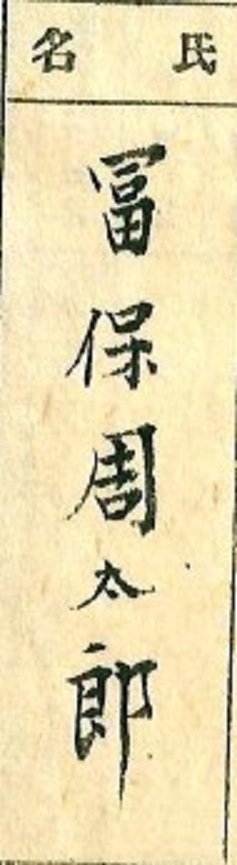 氏名
冨保周太郎